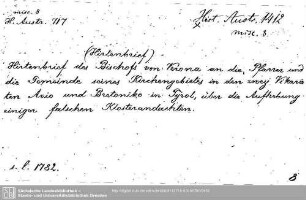 misc. 3
H. Austr. 717
Hist. Austr. 1412
misc. 3
(Hirtenbrief)
Hirtenbrief des Bischofs von Verona an die Pfarrer und
die Gemeinde seines Kirchengebietes in den zwey Vikaria
ten Avio und Bretoniko in Tyrol, über die Aufhebung
einiger falschen Klosterandachten.
s. l. 1782.
8
Sächsische Landesbibliothek -
Staats- und Universitätsbibliothek Dresden